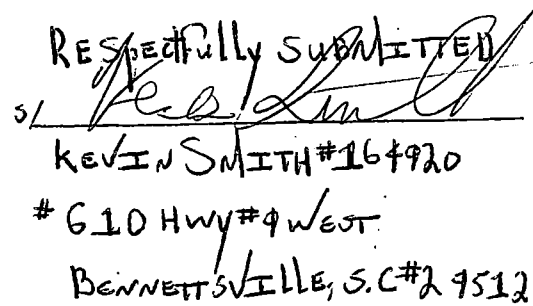 RESpectfully SUBMITTED
s/
KEVIN SMITH #164920
# 610 HWY #9 WEST
BENNETTSVILLE, S.C #29512